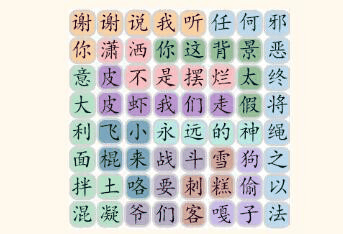 谢谢说我听任何邪
你潇洒你这背景恶
意皮不是摆烂太终
大皮虾我们走假将
利飞小永远的神绳
面棍来战斗雪狗之
拌土咯要刺糕偷以
混凝爷们客嘎子法